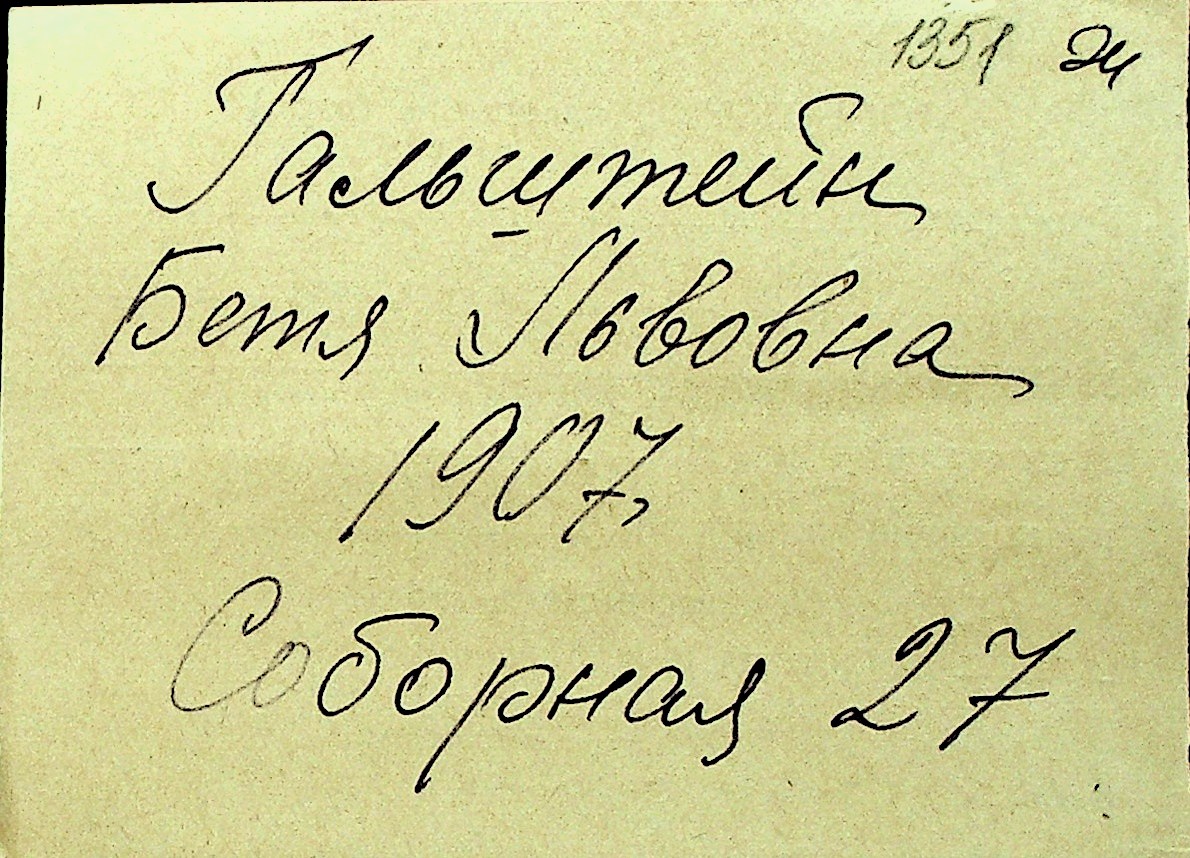 1351 эч
Гальштейн
Бетя Львовна
1907
Соборная 27